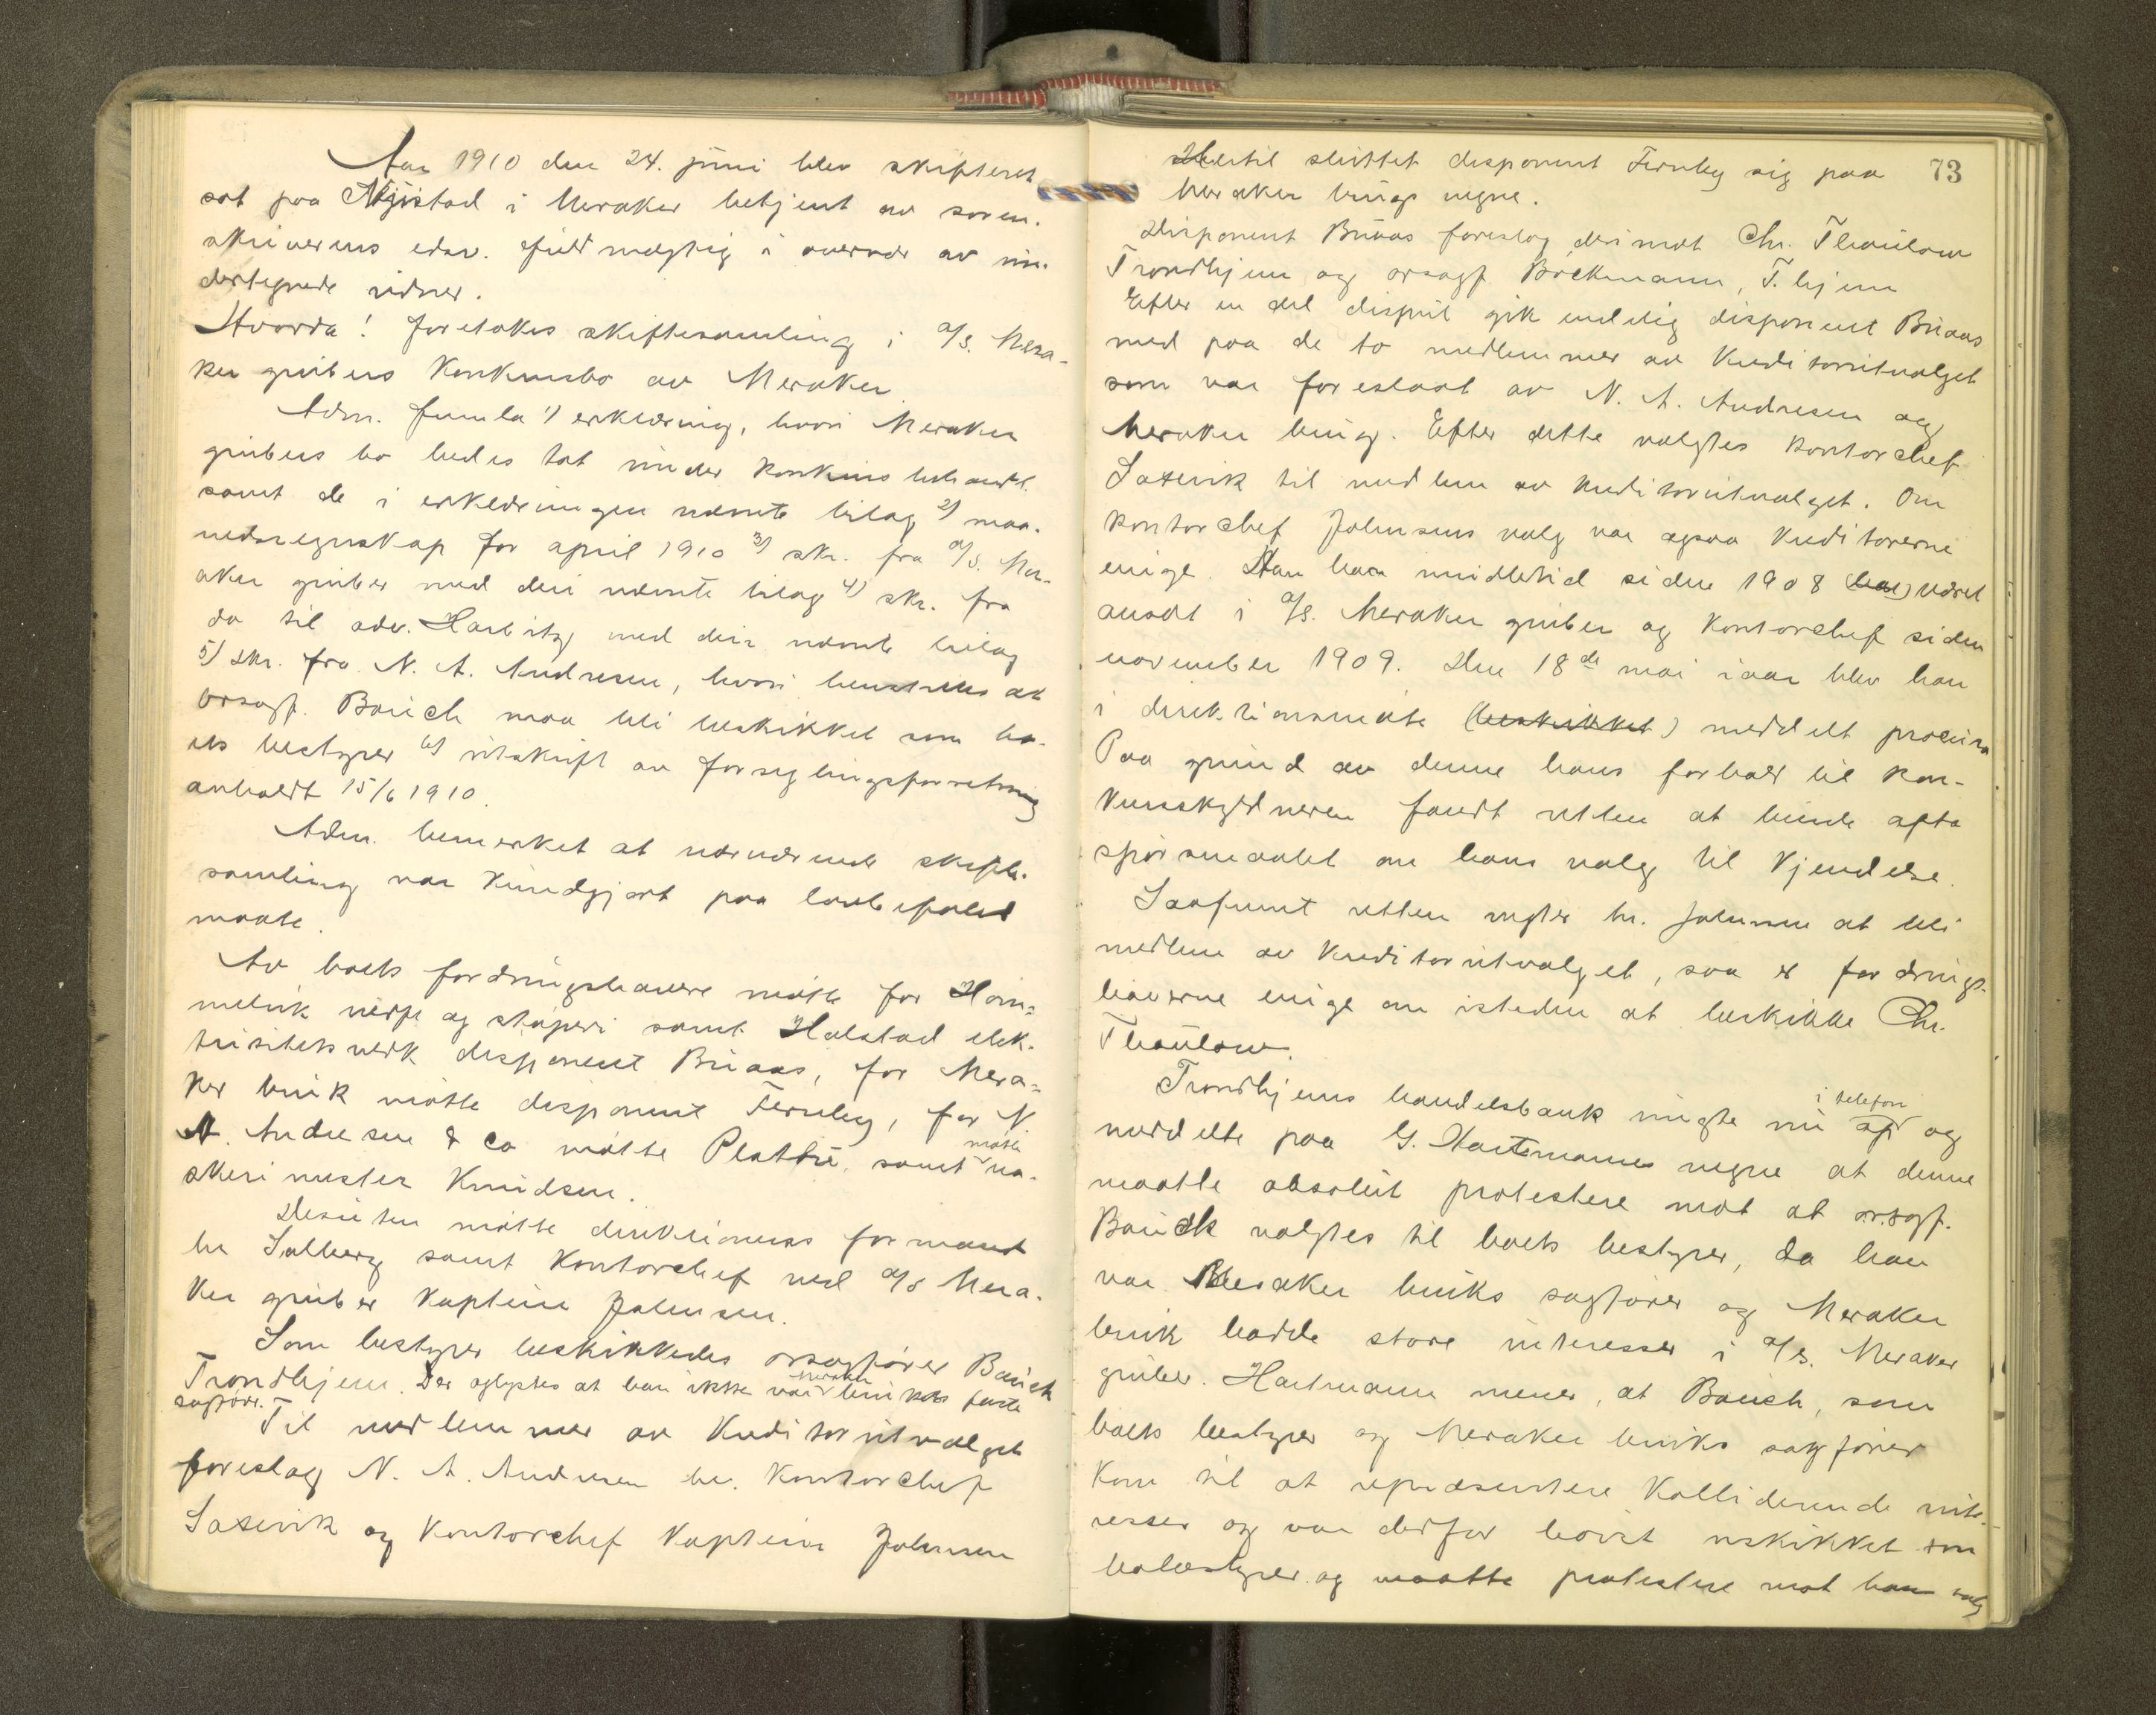 Aar 1910 den 24. juni blev skifteret
sat paa Nystad i Meraker betjent av soren-
skriverens edsv. fuldmægtig i overvær av un-
dertegnede vidner.
Hvorda! Foretokes skiftesamling i A/S. Mera-
ker grubers konkursbo av Meraker
Adm. fremla 1) erklæring, hvori Meraker
grubers bo bedes tat under konkursbehandl.
samt de i erklæringen nævnte bilag 2) maa-
nedsregnskap for april 1910 3) skr. fra A/S. Mer-
aker gruber med deri nævnte bilag 4) skr. fra
do til adv. Harbitz med deri nævnte bilag
5) skr. fra N. A. Andresen, hvori henstilles at
orsagf. Bauck maa bli beskikket som bo-
ets bestyrer 6) utskrift av forseglingsforretning
avholdt 15/6 1910.
Adm. bemerket at nærværende skifte-
samling var kundgjort paa lovbefalet
maate.
Av boets fordringshavere møtte for Hom-
melvik verft og støperi samt Halstad elek-
trisitetsverk disponent Bruaas, for Mera-
ker bruk møtte disponent Fernley, for N.
A. Andresen & Co møtte Plathe, samt møtte va-
skerimester Knudsen.
Desuten møtte direktionens formand
hr Solberg samt kontorchef ved A/S Mera-
ker gruber kaptein Johnsen.
Som bestyrer beskikkedes orsagfører Bauck
Trondhjem. Der oplystes at han ikke var Meraker bruks faste
sagfører.
Til medlemmer av kreditorutvalget
foreslog N. A. Andresen hr. kontorchef
Saxevik og kontorchef kaptein Johnsen
73
Hertil sluttet disponent Fernley sig paa
Meraker brugs vegne.
Disponent Bruaas foreslog derimot Chr. Thaulow
Trondhjem og orsagf. Bøckmann, T.hjem
Efter en del disput gik endelig disponent Bruaas
med paa de to medlemmer av kreditorutvalget
som var foreslaat av N. A. Andresen og
Meraker brug. Efter dette valgtes kontorchef
Saxevik til medlem av kreditorutvalget. Om
kontorchef Johnsens valg var ogsaa kreditorerne
enige. Han har imidlertid siden 1908 (har) været
ansat i A/S. Meraker gruber og kontorchef siden
november 1909. Den 18de mai iaar blev han
i direktionsmøte (beskikket) meddelt procura
Paa grund av denne hans forhold til kon-
kursskyldneren fandt retten at burde opta
spørsmaalet om hans valg til kjendelse.
Saafremt retten negter hr. Johnsen at bli
medlem av kreditorutvalget, saa er fordrings-
haverne enige om isteden at beskikke Chr.
Thaulow.
Trondhjems handelsbank ringte nu op i telefon og
meddelte paa G. Hartmanns vegne at denne
maatte absolut protestere mot at orsagf.
Bauck valgtes til boets bestyrer, da han
var Meraker bruks sagfører og Meraker
bruk hadde store interesser i A/S. Meraker
gruber. Hartmann mener, at Bauck, som
boets bestyrer og Meraker bruks sagfører
kom til at repræsentere kolliderende inte-
resser og var derfor høist uskikket som
bobestyrer og maatte protestere mot hans valg